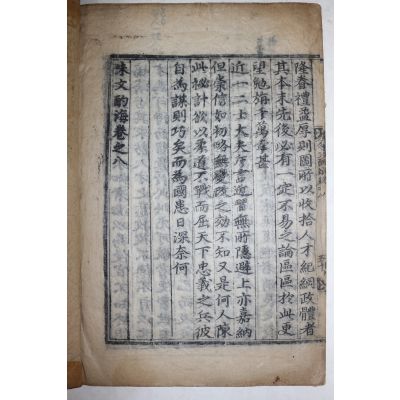 隆眷禮益厚則圖所以收拾人才紀綱政體者
其本末先後必有一定不易之論區區於此更
望勉旃千萬幸甚
近一二上大夫序書迎謦無所隱避上亦嘉納
但棄信如初略無變改之効不知又是何人陳
此秘計欲以柔道不戰而屈天下忠義之兵彼
自為謀則巧矣而為國患日深奈何
朱文酌海卷之八